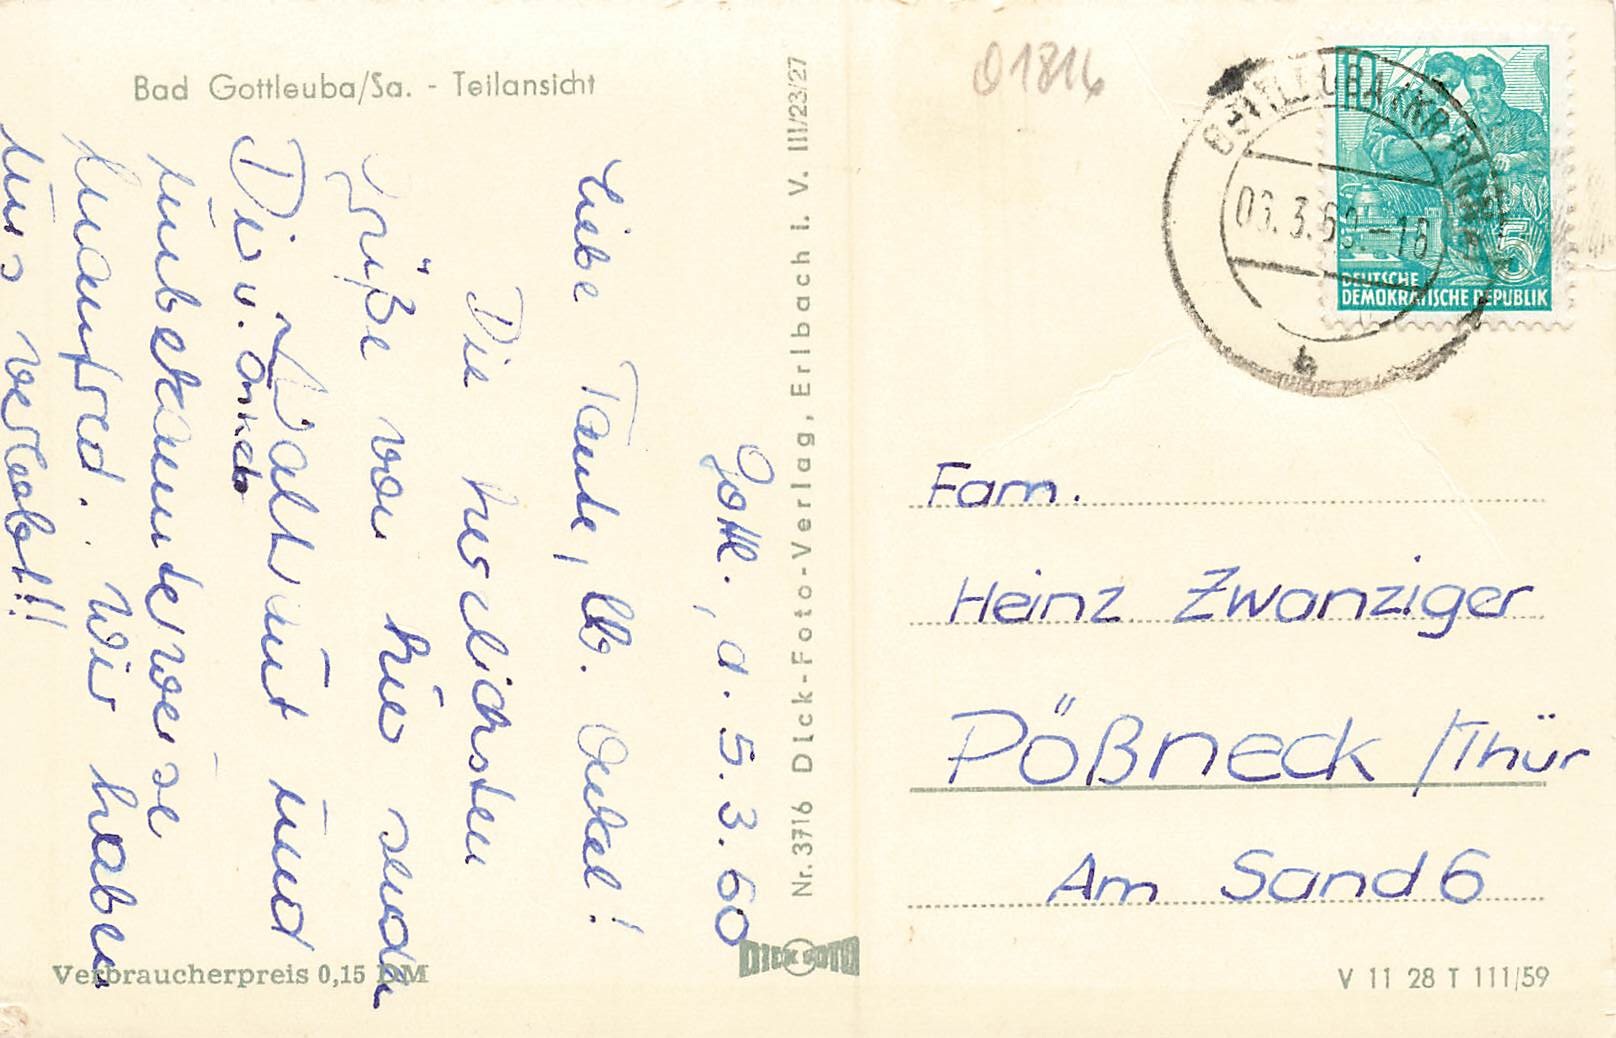 Bad Gottleuba/Sa. - Teilansicht
Gottl., d. 5.3.60
Liebe Tante, lb. Onkel!
Die herzlichsten
Grüße von hier senden
Dir u. Onkel
Waltraut und
unbekannterweise
Manfred. Wir haben
uns verlobt!!
Verbraucherpreis 0,15 DM
Nr. 3716 Dick-Foto-Verlag, Erlbach i. V. III/23/27
DICK FOTO
01816
GOTTLEUBA (KR PIRNA)
06.3.60.-16
b
10
5
DEUTSCHE
DEMOKRATISCHE REPUBLIK
Fam.
Heinz Zwanziger
Pößneck /Thür
Am Sand 6
V 11 28 T 111/59